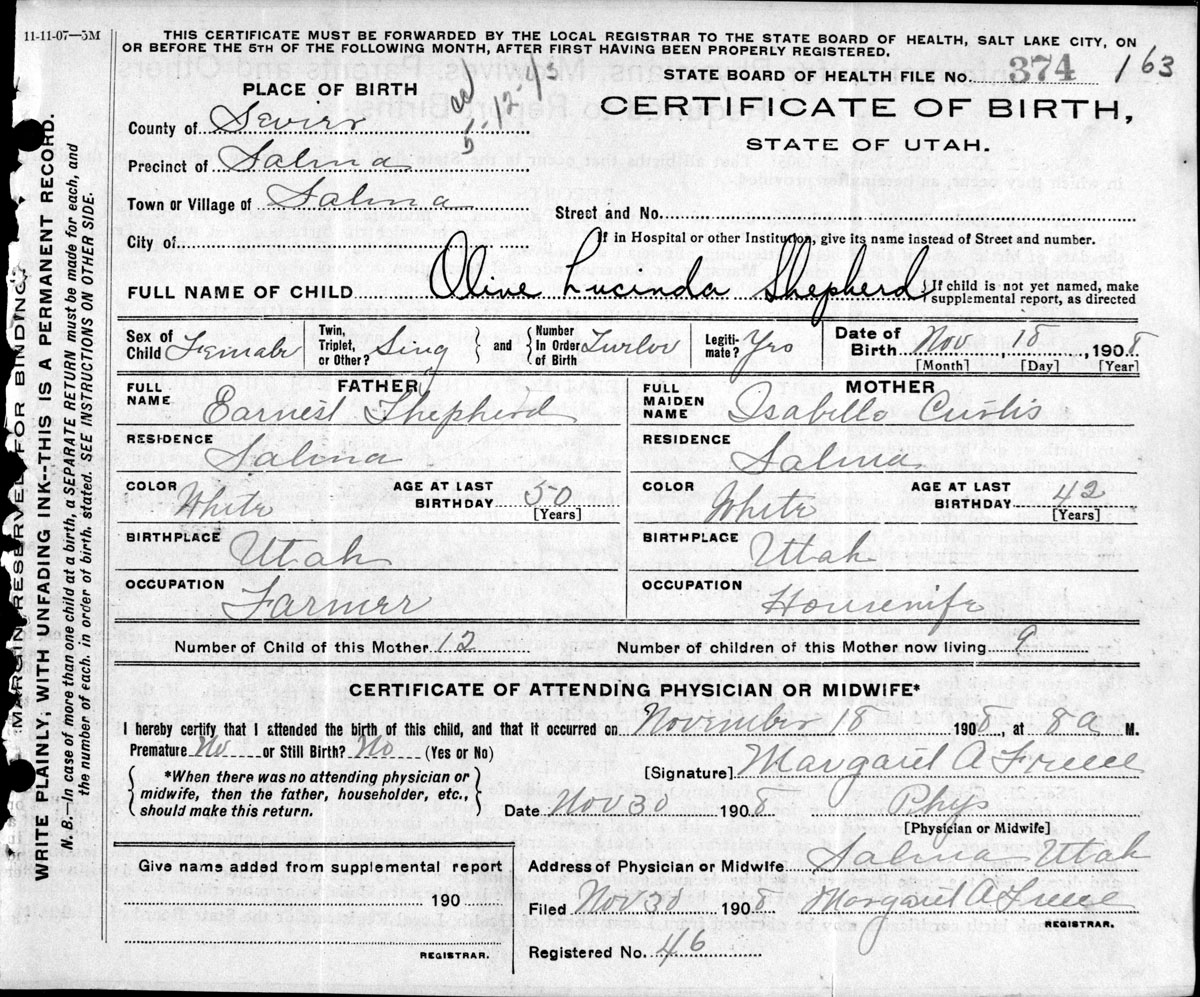 11-11-07—5M
THIS CERTIFICATE MUST BE FORWARDED BY THE LOCAL REGISTRAR TO THE STATE BOARD OF HEALTH, SALT LAKE CITY, ON
OR BEFORE THE 5TH OF THE FOLLOWING MONTH, AFTER FIRST HAVING BEEN PROPERLY REGISTERED.
STATE BOARD OF HEALTH FILE No. 374 163
PLACE OF BIRTH
CERTIFICATE OF BIRTH,
STATE OF UTAH.
County of Sevier
Precinct of Salina
Town or Village of Salina
Street and No.
City of
If in Hospital or other Institution, give its name instead of Street and number.
FULL NAME OF CHILD Olive Lucinda Shepherd } If child is not yet named, make
supplemental report, as directed
Sex of Child Female
Twin, Triplet, or Other? Sing } and { Number In Order of Birth
Legiti- mate? Yes
Date of Birth Nov 18, 1908
[Month] [Day] [Year]
FATHER
FULL NAME Earnest Shepherd
RESIDENCE Salina
COLOR White AGE AT LAST BIRTHDAY 50 [Years]
BIRTHPLACE Utah
OCCUPATION Farmer
MOTHER
FULL MAIDEN NAME Isabella Curtis
RESIDENCE Salina
COLOR White AGE AT LAST BIRTHDAY 42 [Years]
BIRTHPLACE Utah
OCCUPATION Housewife
Number of Child of this Mother 12 Number of children of this Mother now living 9
CERTIFICATE OF ATTENDING PHYSICIAN OR MIDWIFE*
I hereby certify that I attended the birth of this child, and that it occurred on November 18 1908, at 8 a M.
Premature No or Still Birth? No (Yes or No)
{ *When there was no attending physician or
midwife, then the father, householder, etc.,
should make this return. }
[Signature] Margaret A
Date Nov 30 1908 Phys
[Physician or Midwife]
Give name added from supplemental report
190
REGISTRAR.
Address of Physician or Midwife Salina Utah
Filed Nov 30 1908 Margaret A
REGISTRAR.
Registered No. 46
MARGIN RESERVED FOR BINDING.
WRITE PLAINLY, WITH UNFADING INK—THIS IS A PERMANENT RECORD.
N. B.—In case of more than one child at a birth, a SEPARATE RETURN must be made for each, and
the number of each. in order of birth. stated. SEE INSTRUCTIONS ON OTHER SIDE.